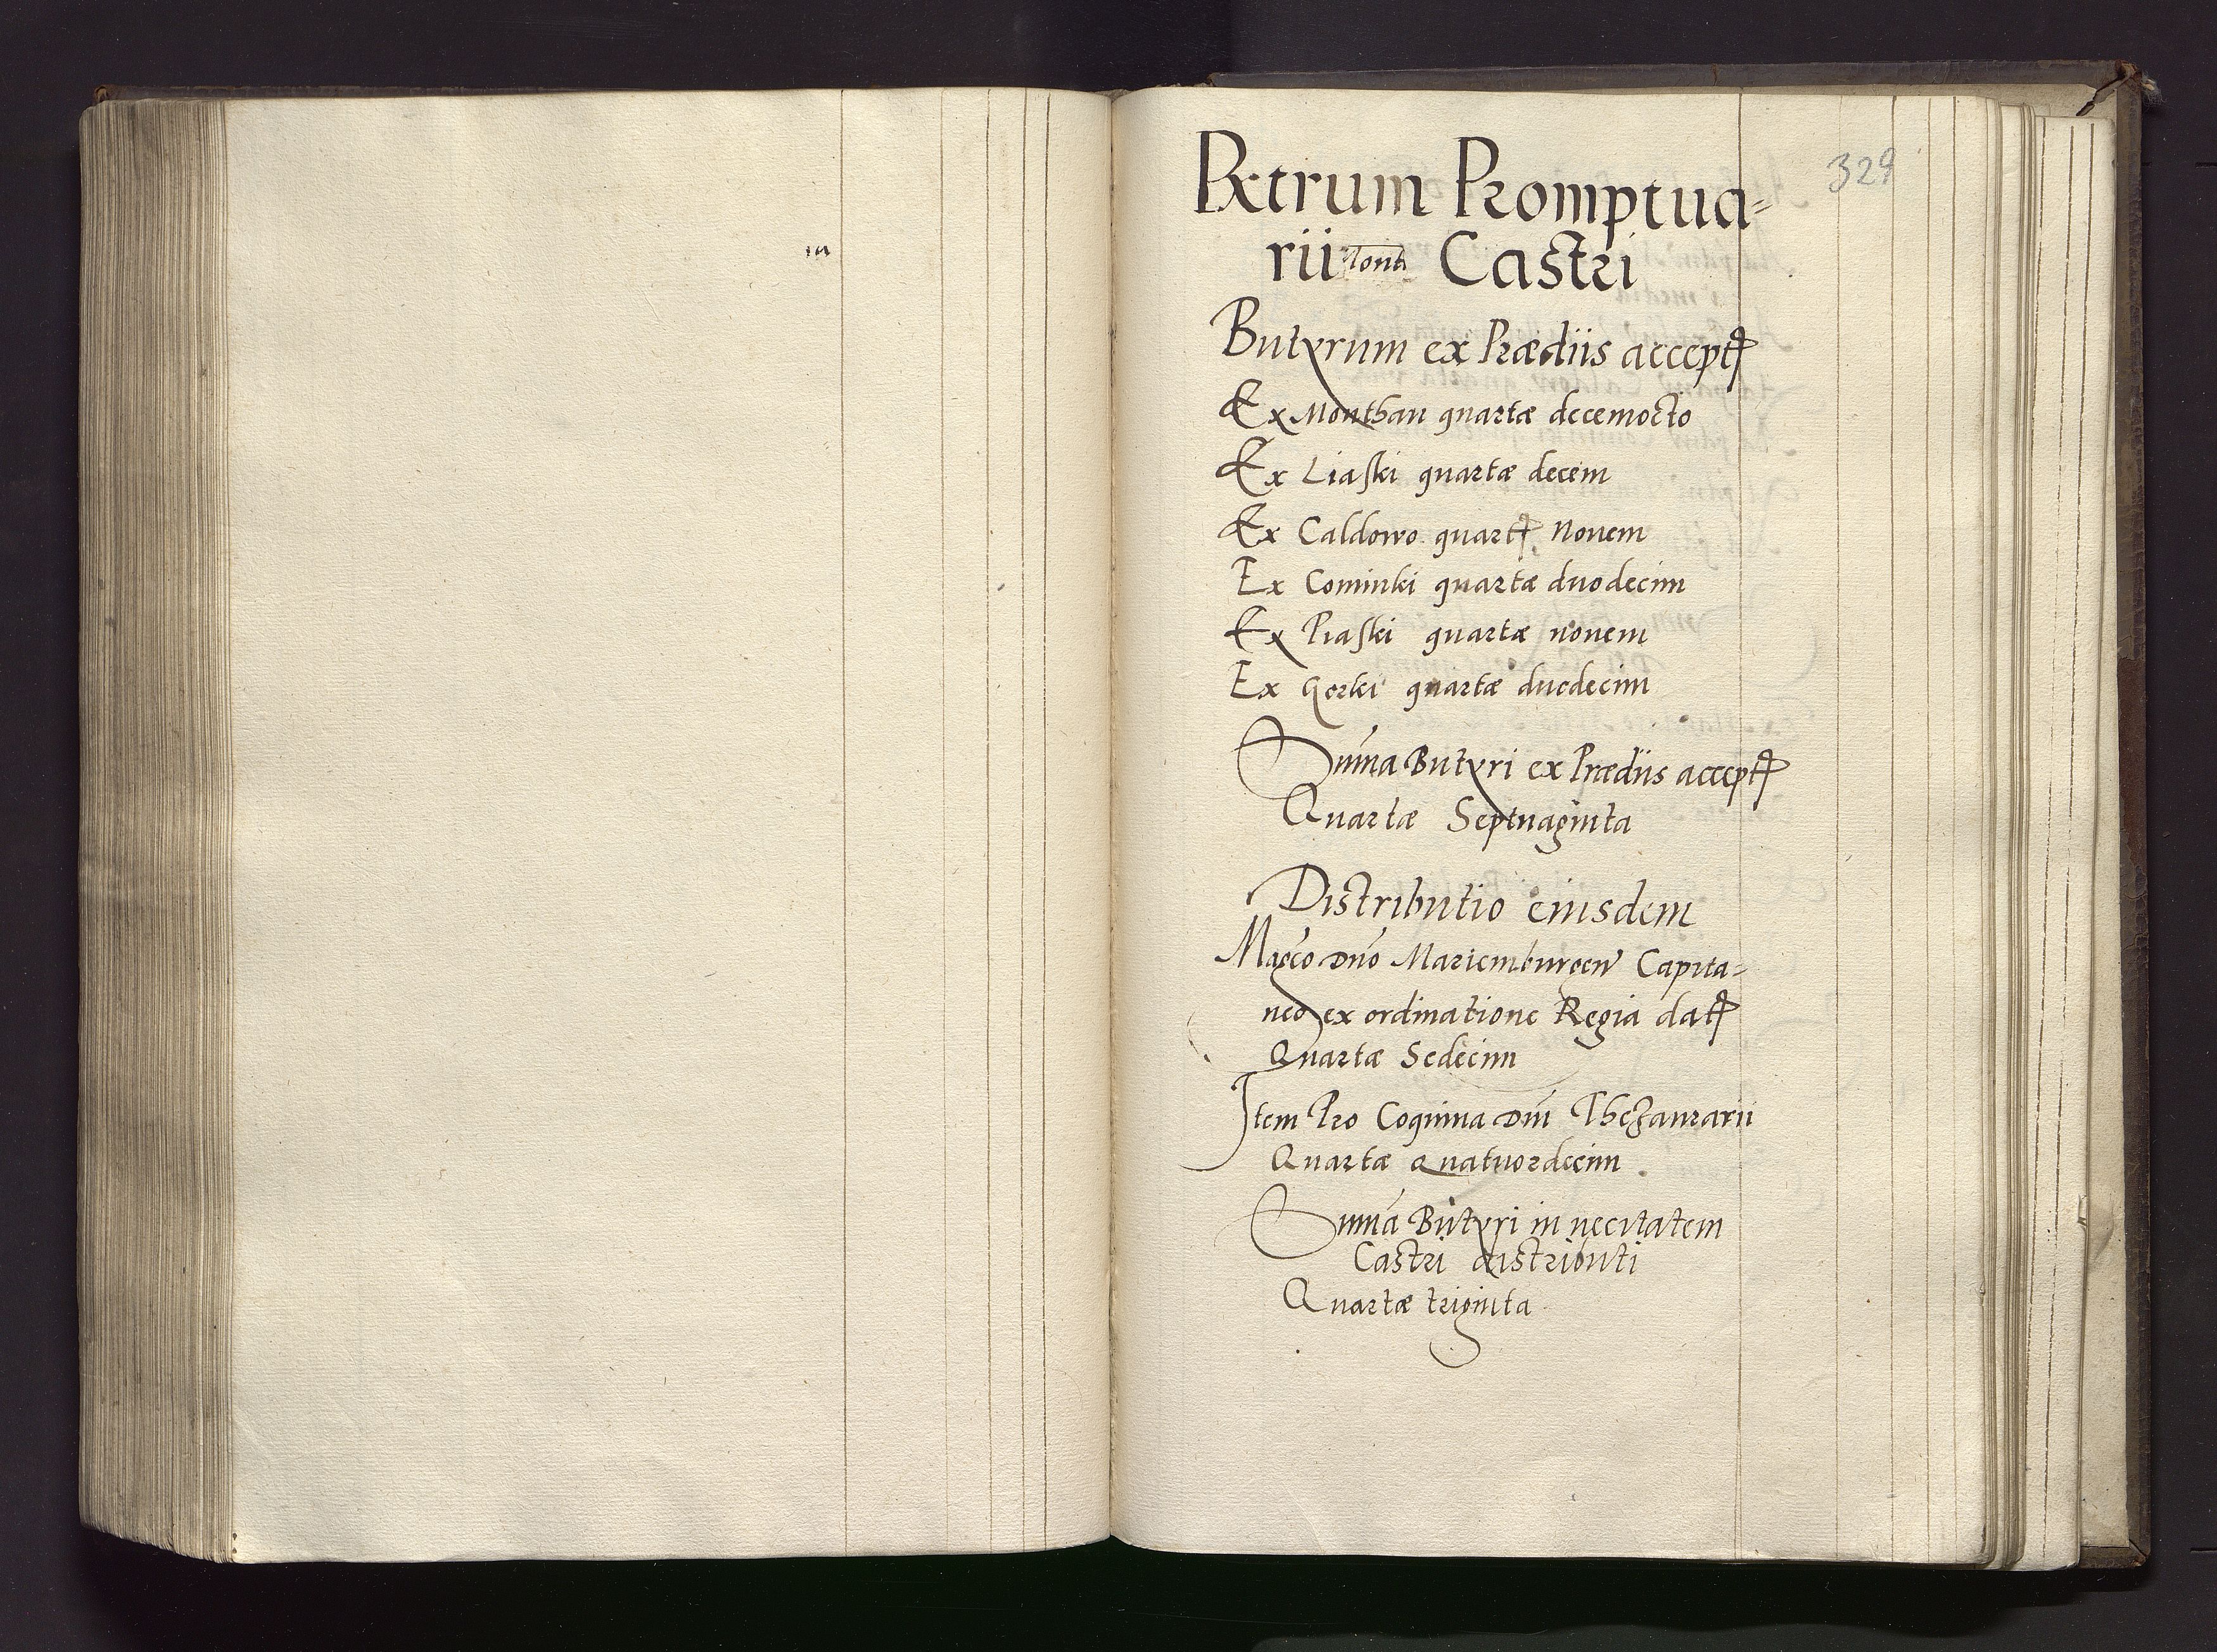 329
Rtrum Promptua=
rii Castri
Butyrum ex Prædiis accept
Ex Monthau quartæ decemocto
Ex Liaski quartæ decem
Ex Caldowo quart Nouem
Ex Cominki quartæ duodecim
Ex Piaski quartæ nouem
Ex Gorki quartæ duodecim
Suma Butyri ex Prædiis accept
Quartæ Septuaginta
Distributio eiusdem
Magco Dno Mariemburgen Capita=
neo ex ordinatione Regia dat
Quartæ Sedecim
Item Pro Coquina Dni Thezaurarii
Quartæ Quatuordecim
Suma Butyri in necitatem
Castri distributi
Quartæ triginta